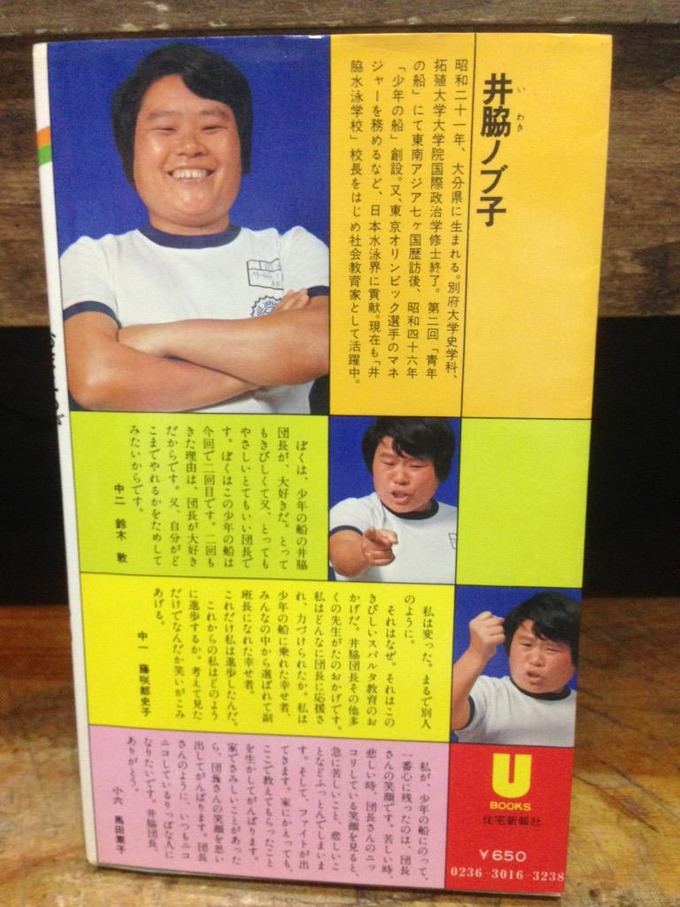 井脇ノブ子
いわき
昭和二十一年、大分県に生まれる。別府大学史学科、
拓殖大学大学院国際政治学修士終了。第二回「青年
の船」にて東南アジア七ヶ国歴訪後、昭和四十六年
「少年の船」創設。又、東京オリンピック選手のマネ
ジャーを務めるなど、日本水泳界に貢献。現在も「井
脇水泳学校」校長をはじめ社会教育家として活躍中。
ぼくは、少年の船の井脇
団長が、大好きだ。とって
もきびしくて又、とっても
やさしいとてもいい団長で
す。ぼくはこの少年の船は
今回で二回目です。二回も
きた理由は、団長が大好き
だからです。又、自分がど
こまでやれるかをためして
みたいからです。
中二 鈴木 敦
私は変った。まるで別人
のように。
それはなぜ。それはこの
きびしいスパルタ教育のお
かげだ。井脇団長その他多
くの先生がたのおかげです。
私はどんなに団長に応援さ
れ、力づけられたか。私は
少年の船に乗れた幸せ者、
みんなの中から選ばれて副
班長になれた幸せ者。
これだけ私は進歩したんだ。
これからの私はどのよう
に進歩するか。考えて見た
だけでなんだか笑いがこみ
あげる。
中一 藤咲都史子
私が、少年の船にのって、
一番心に残ったのは、団長
さんの笑顔です。苦しい時、
悲しい時、団長さんのニッ
コリしている笑顔を見ると、
急に苦しいこと、悲しいこ
となどふっとんでしまいま
す。そして、ファイトが出
てきます。家にかえっても、
ここで教えてもらったこと
を生かしてがんばります。
家でさみしいことがあった
ら、団長さんの笑顔を思い
出してがんばります。団長
さんのように、いつもニコ
ニコしているりっぱな人に
なりたいです。井脇団長、
ありがとう。
小六 馬田薫子
U
BOOKS
住宅新報社
¥650
0236-3016-3238